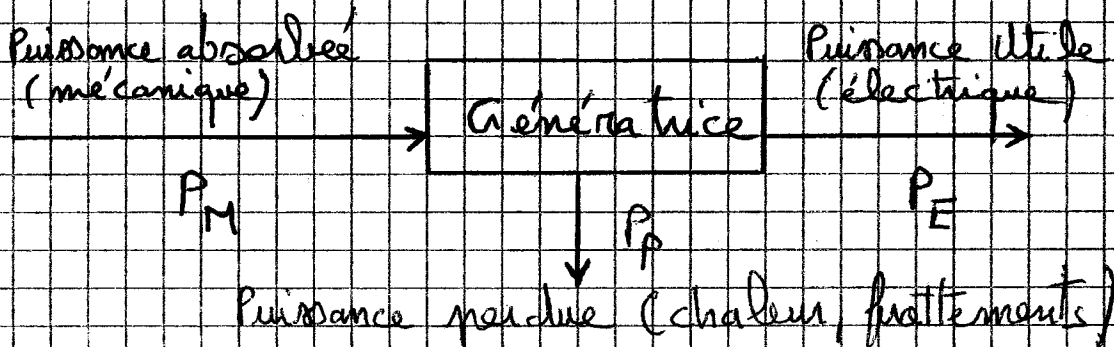 Puissance absorbée
(mécanique)
Génératrice
Puissance Utile
(électrique)
P_M
P_P
P_E
Puissance perdue (chaleur, frottements)